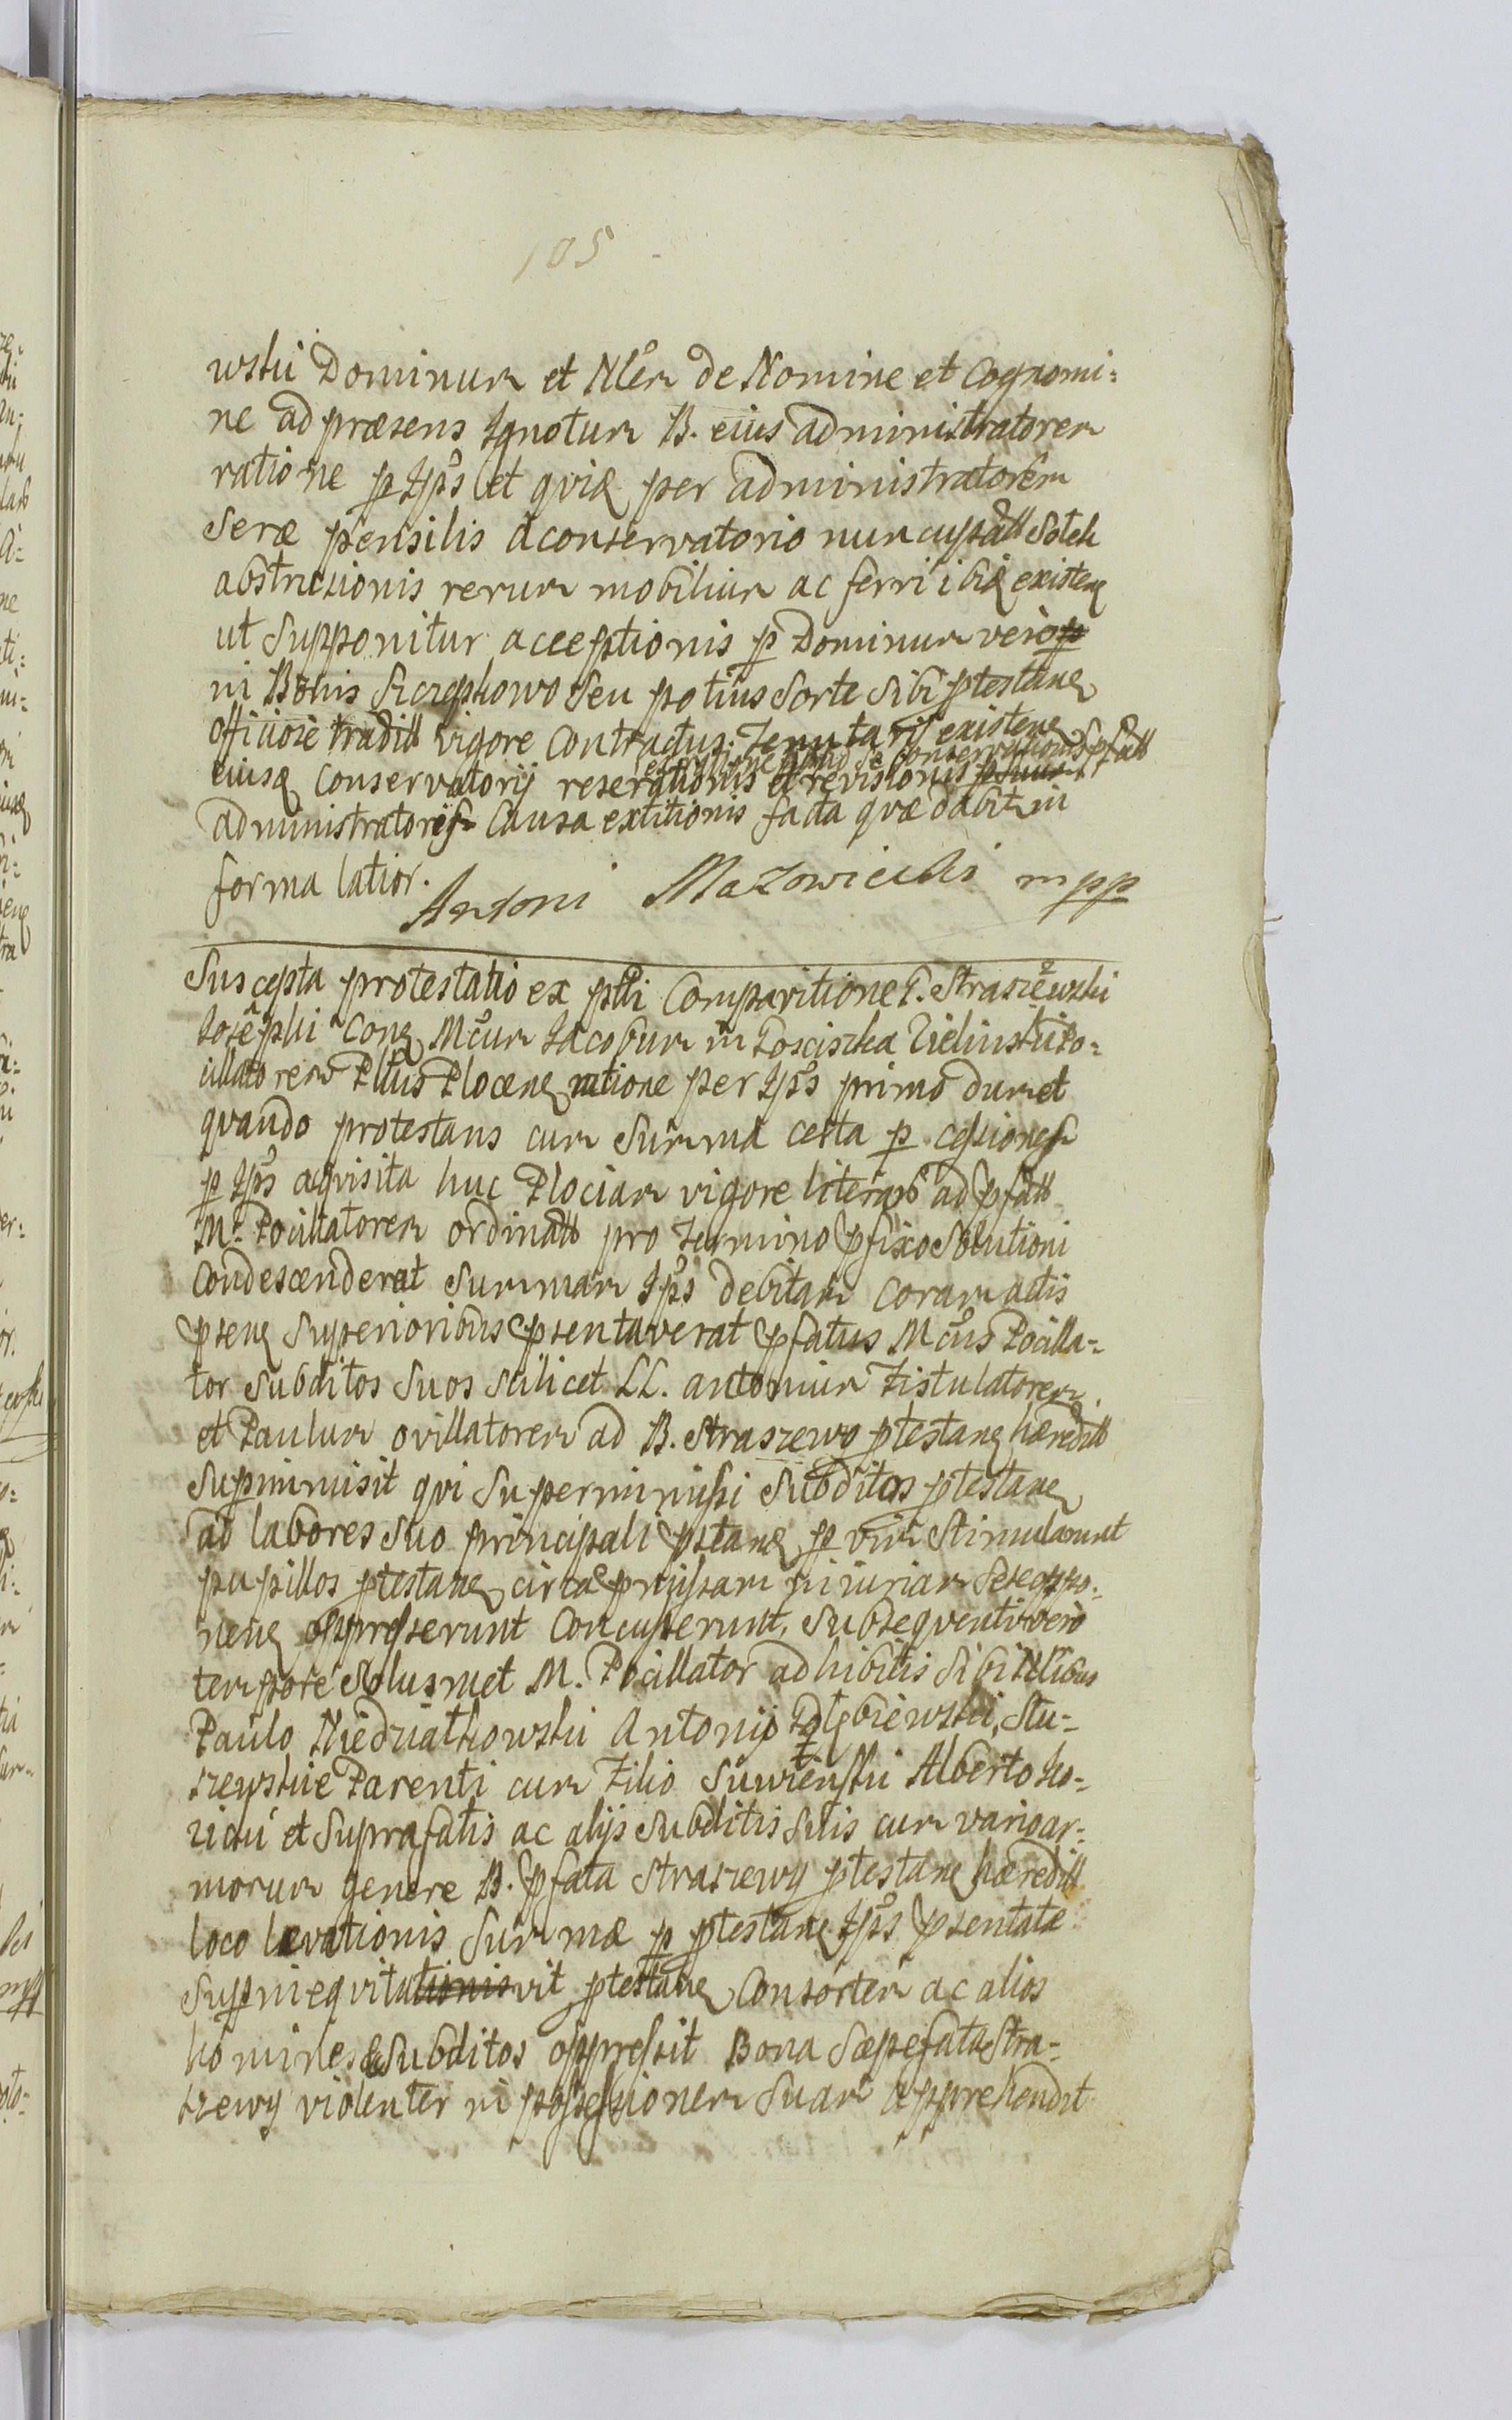 105
wski Dominum et Nlem de Nomine et Cognomi=
ne ad præsens Ignotum B. eius administratorem
ratione p Ips et quia per administratorem
seræ pensilis a conservatorio nuncupatt
abstractionis rerum mobilium ac ferri ibiq existen
ut supponitur acceptionis p Dominum vero
in Bonis seu potius Sorte sibi ptestane
officiose tradill vigore Contractus Tenutarij existene
conservatorij pfatt
eiusq Conservatorij reserationis et revisionis
administratorem Causa extitionis facta quæ dabit in
forma latior.
Antoni Mazowiecki mpp
Suscepta protestatio ex ptti Comparitione G. Straszewski
Josephi Con Mcum Jacobum in Zielinski Po=
cillatorem Pttus Plocen ratione per Ips primo dum et
quando protestans cum Summa certa p cessionem
p Ips aqvisita huc Plociam vigore literarum ad pfatt
M. Pocillatorem ordinatt pro Termino pfixo Solutioni
Condescenderat Summam Ips debitam Coram actis
psen Superioribus psentaverat pfatus Mcus Pocilla=
tor Subditos Suos Scilicet LL. antonium Fistulatorem
et Paulum ovillatorem ad B. Straszewo ptestane hæreditt
Supimmisit qui Superimmissi Subditos ptestane
ad labores Suo principali pstane p vim Stimularunt
pupillos ptestane circa pmissam iniuriam Sese oppo=
nene oppresserunt Concusserunt, Subsequenti vero
tempore Solusmet M. Pocillator adhibitis Sibi Nlibus
Paulo Niedziatkowski Antonij Gołębiewski, Stu=
szewskie Parenti cum Filio Alberto Ko=
zicki et Suprafatis ac alijs Subditis Suis cum vario ar=
morum genere B. pfata Straszewy ptestane hæreditt
loco levationis Summæ p ptestane Ips psentatæ
Supinequitationisvit ptestane Consortem ac alios
homines & Subditos oppressit Bona Sæpefata Stra=
szewy violenter in possessionem Suam apprehendit